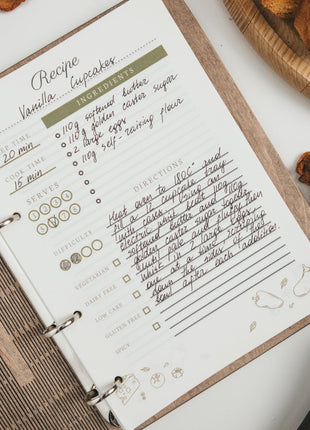 Recipe
Vanilla Cupcakes
INGREDIENTS
110g softened butter
110g golden caster sugar
2 large eggs
110g self-raising flour
PREP TIME
20 min
COOK TIME
15 min
SERVES
DIFFICULTY
VEGETARIAN
DAIRY FREE
LOW CARB
GLUTEN FREE
SPICY
DIRECTIONS
Heat oven to 180C and
fill a 12 cupcake tray
with cases. Using an
electric whisk beat 110g
softened butter and 110g
golden caster sugar together
until pale and fluffy then
whisk in 2 large eggs,
one at a time, scraping
down the sides of the
bowl after each addition.